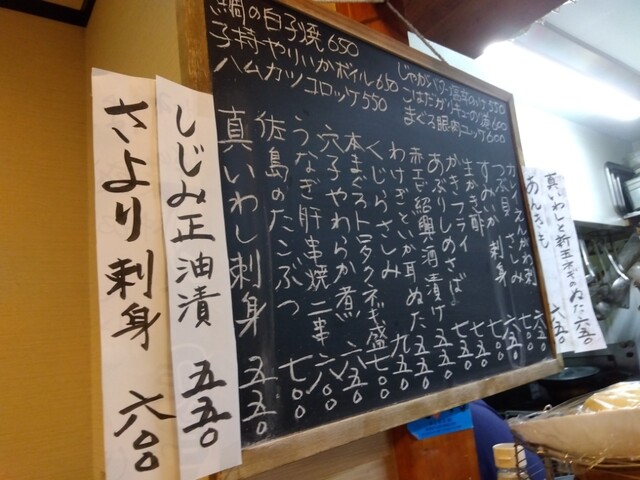 鯛の白子焼 650
子持やりいかボイル 650
ハムカツコロッケ 550
じゃがバター塩辛のっけ 550
こはだガリキューリ酒 600
まぐろ眼肉ユッケ 600
さより刺身 六〇〇
しじみ正油漬 五五〇
真いわし刺身 五五〇
佐島のたこぶつ 七〇〇
うなぎ肝串焼二串
穴子やわらか煮 六八〇
本まぐストロタクネギ盛 六五〇
くじらさしみ 七〇〇
わけぎといか耳ぬた 五五〇
赤エビ紹興酒漬け 五五〇
あぶりしめさば
かきフライ 七五〇
生かき酢 七五〇
すみいか刺身
つぶ貝さしみ 六五〇
えんがわ刺 六五〇
あんきも 六五〇
真いわしと新玉ネギのぬた 六五〇